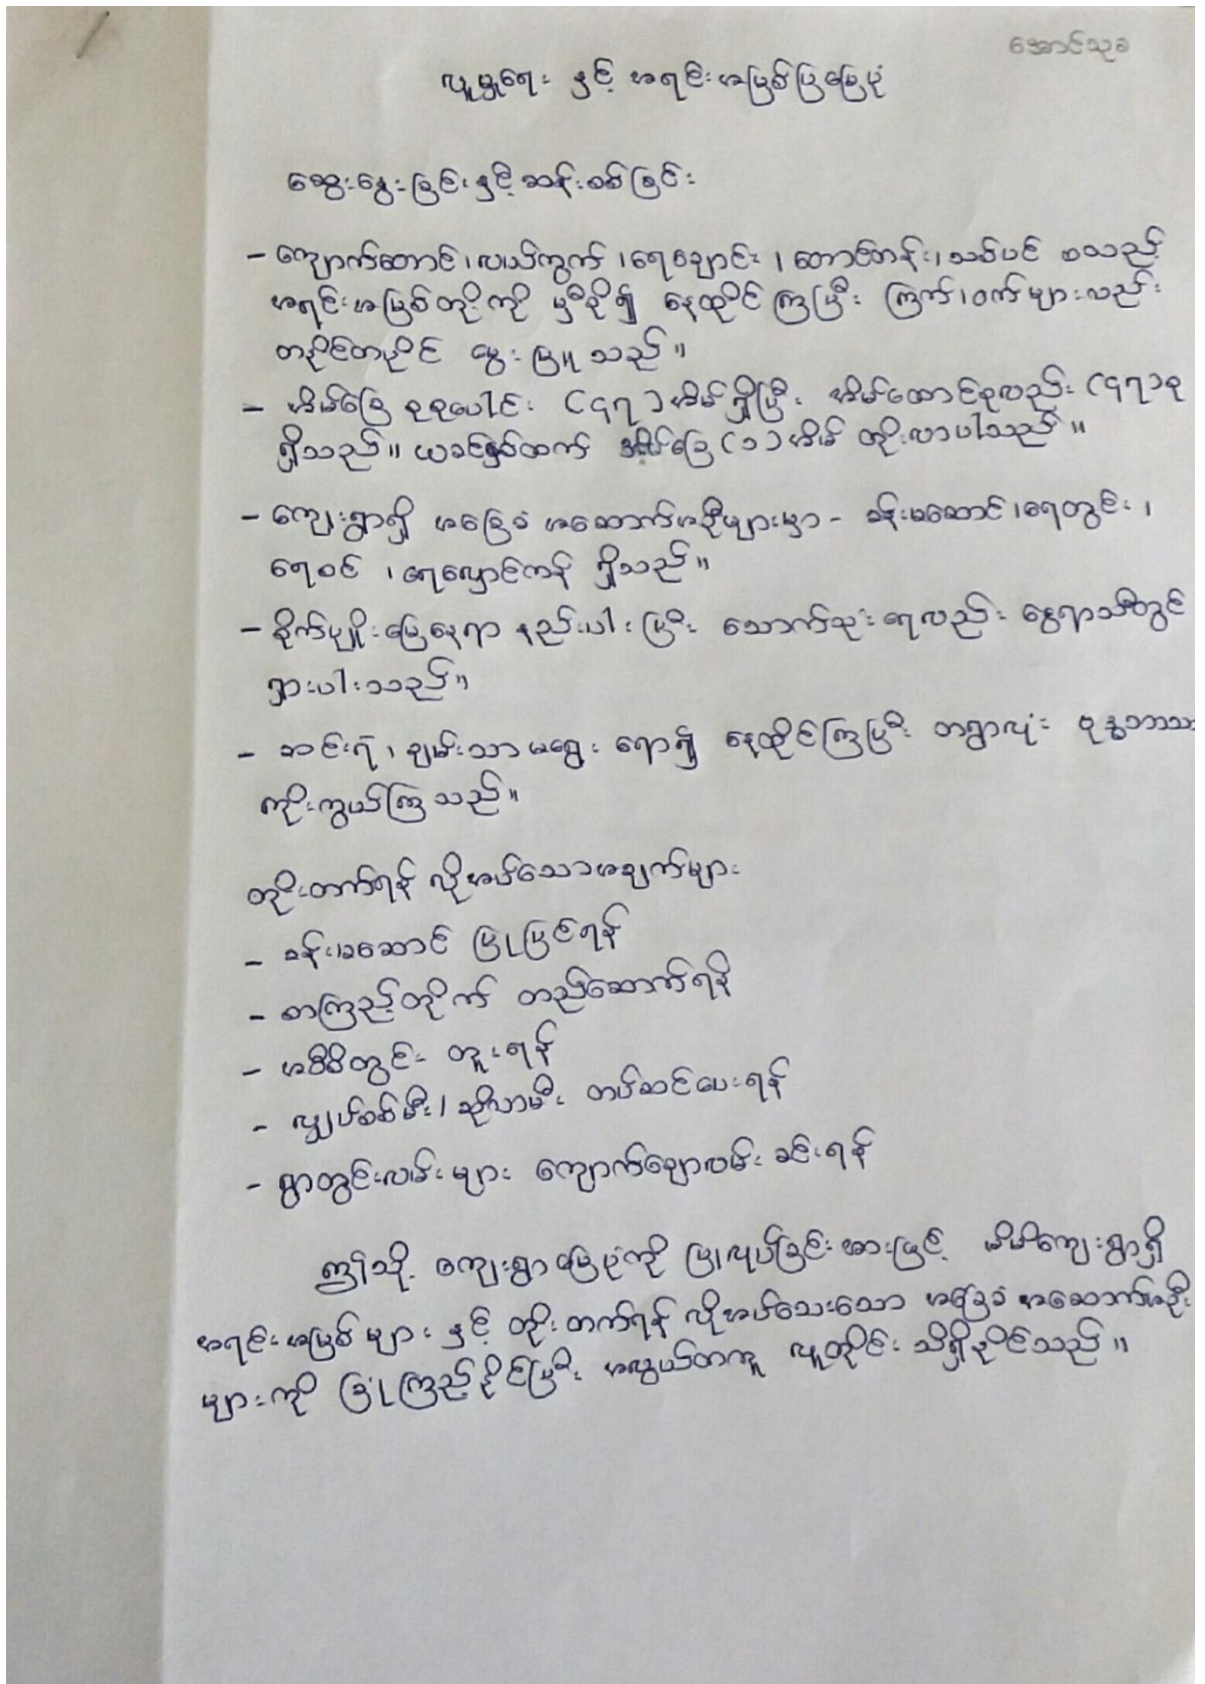 အောင်သုခ
လူမှုရေး နှင့် အရင်းအမြစ်ပြမြေပုံ
ဆွေးနွေးခြင်းနှင့်ဆန်းစစ်ခြင်း
- ကျောက်တောင်၊လယ်ကွက် ၊ရေချောင်း ၊တောင်တန်း၊သစ်ပင် စသည့်
အရင်းအမြစ်တို့ကို မှီခို၍ နေထိုင်ကြပြီး ကြက်၊ဝက်များလည်း
တနိုင်တပိုင် မွေးမြူသည်။
- အိမ်ခြေ စုစုပေါင်း (၄၇)အိမ်ရှိပြီး အိမ်ထောင်စုလည်း (၄၇)စု
ရှိသည်။ ယခင်နှစ်ထက် အိမ်ခြေ(၁)အိမ် တိုးလာပါသည်။
- ကျေးရွာရှိ အခြေခံ အဆောက်အဦများမှာ - ခန်းမဆောင်၊ရေတွင်း ၊
ရေစင် ၊ရေလှောင်ကန် ရှိသည်။
- စိုက်ပျိုးမြေနေရာ နည်းပါးပြီး သောက်သုံးရေလည်း နွေရာသီတွင်
ရှားပါးသည်။
- ဆင်းရဲ ၊ချမ်းသာမရွေး ရော၍ နေထိုင်ကြပြီး တရွာလုံး ဗုဒ္ဓဘာသာ
ကိုးကွယ်ကြသည်။
တိုးတက်ရန် လိုအပ်သောအချက်များ
- ခန်းမဆောင် ပြုပြင်ရန်
- စာကြည့်တိုက် တည်ဆောက်ရန်
- အဝီစိတွင်း တူးရန်
- လျှပ်စစ်မီး/ဆိုလာမီး တပ်ဆင်ပေးရန်
- ရွာတွင်းလမ်းများ ကျောက်ချောလမ်း ခင်းရန်
ဤသို့ ကျေးရွာမြေပုံကို ပြုလုပ်ခြင်းအားဖြင့် မိမိကျေးရွာရှိ
အရင်းအမြစ်များ နှင့် တိုးတက်ရန် လိုအပ်သေးသော အခြေခံ အဆောက်အဦး
များကို ခြုံကြည့်နိုင်ပြီး အလွယ်တကူ လူတိုင်း သိရှိနိုင်သည်။